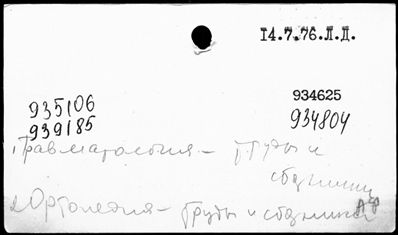 14.7.76.Л.Д.
935106
939185
934625
934804
1 Травматология – Труды и
сборники
2 Ортопедия – Труды и сборники